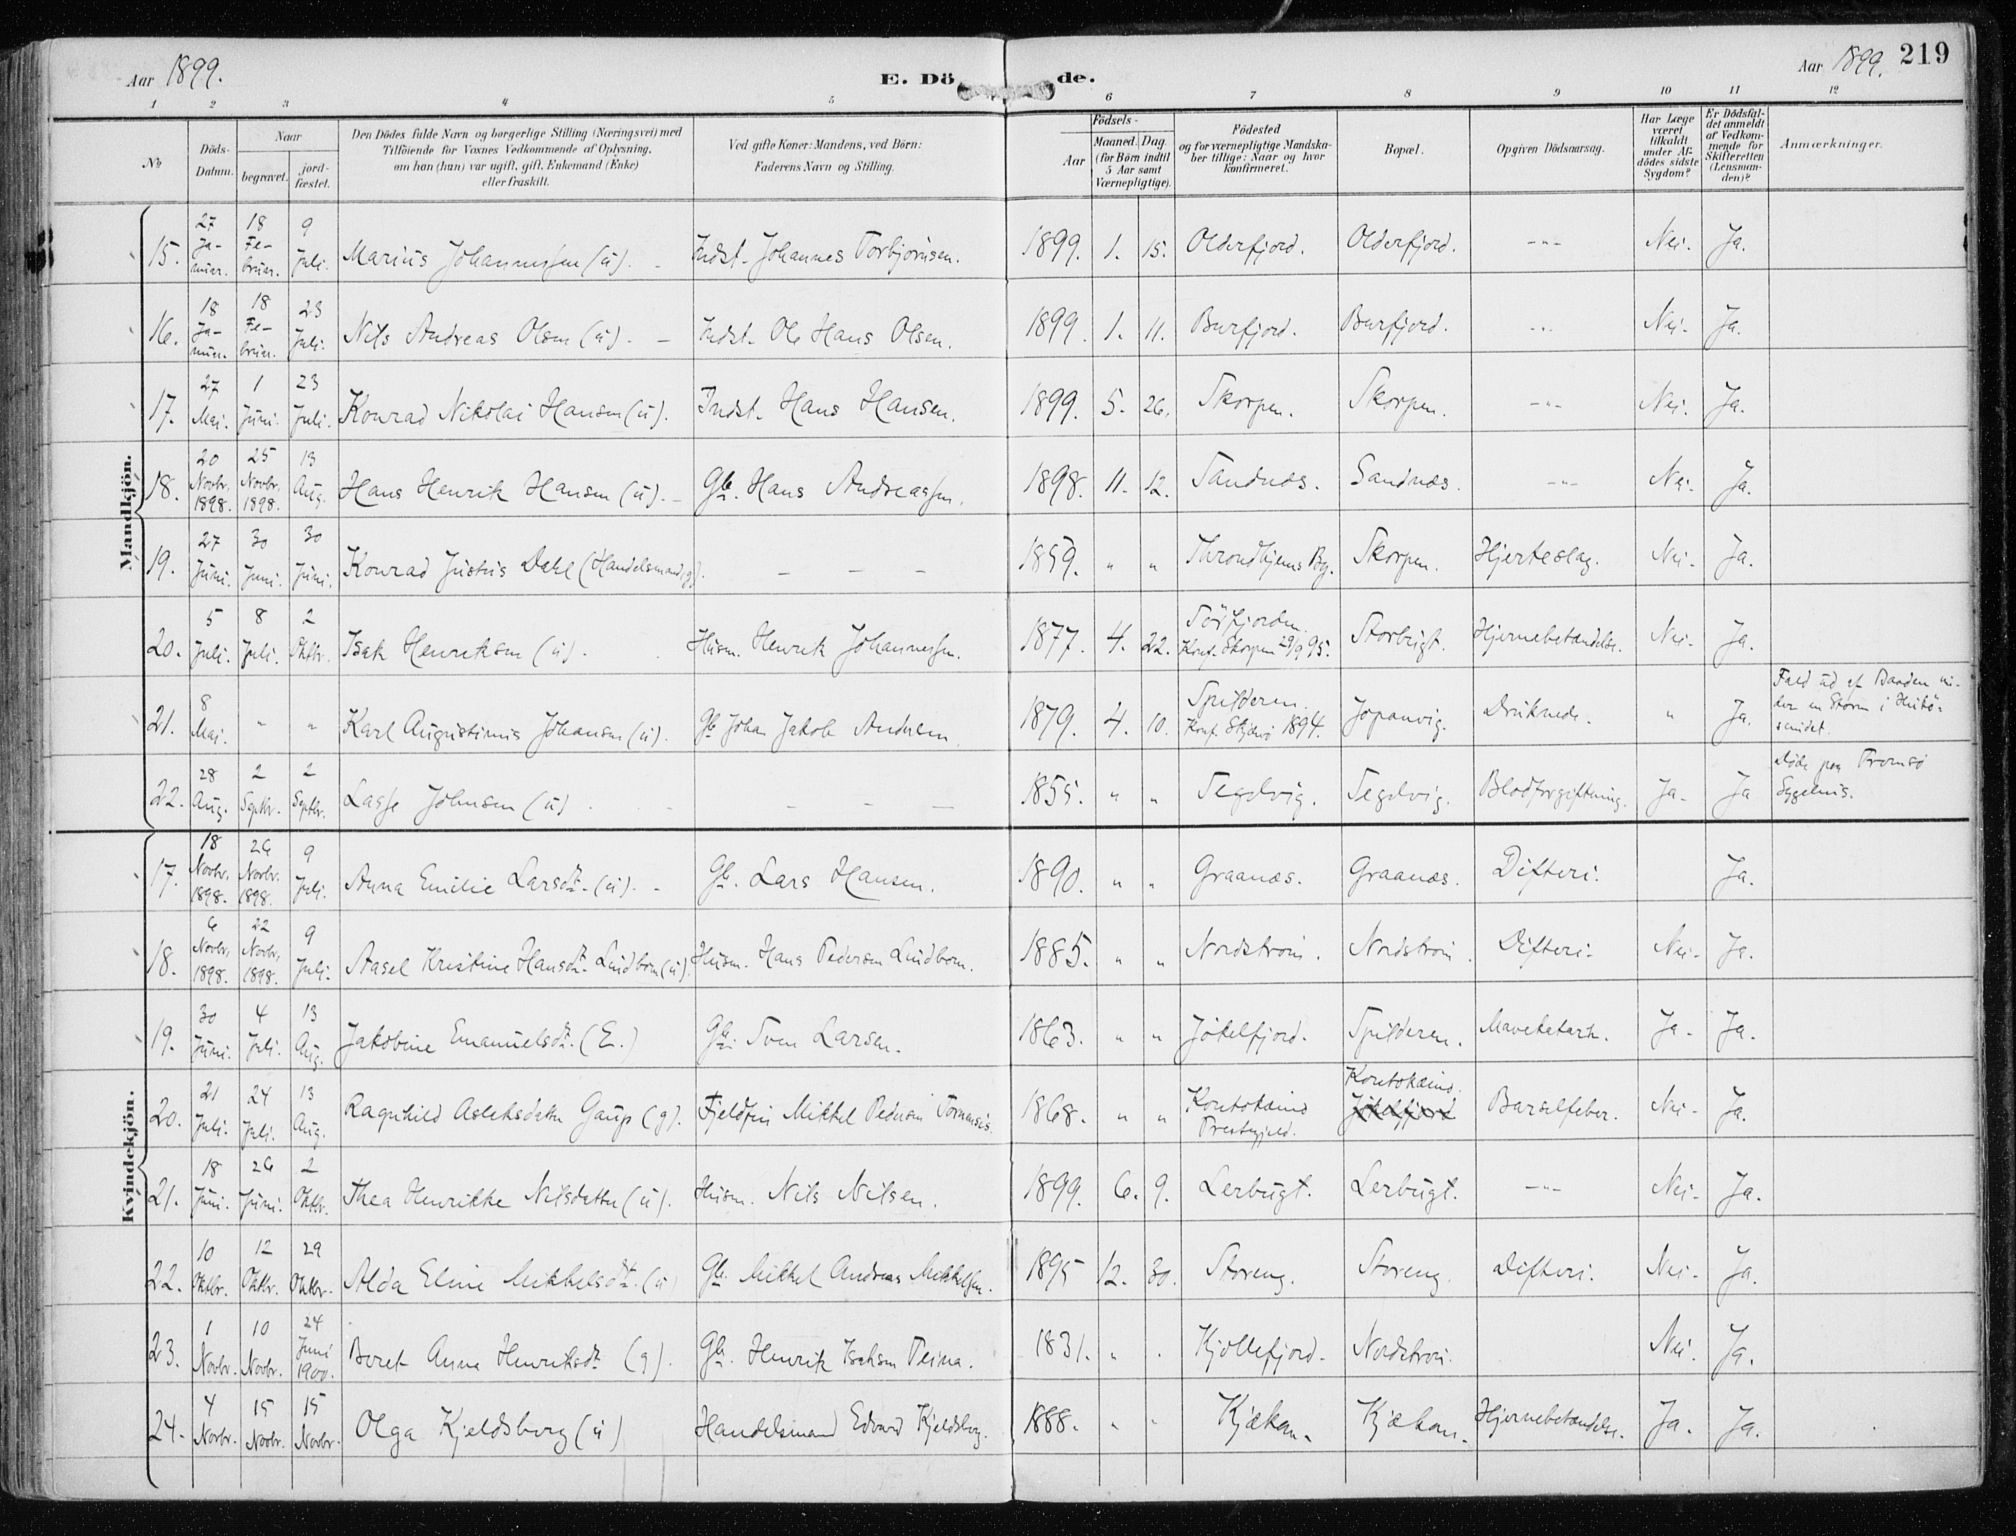 Aar 1899.
E. Dö de.
Aar 1899. 219
1 2 3 4 5 6 7 8 9 10 11 12
No
Döds-Datum.
Naar
begravet.
jord-fæstet.
Den Dödes fulde Navn og borgerlige Stilling (Næringsvei) med
Tilföiende for Voxnes Vedkommende af Oplysning,
om han (hun) var ugift, gift, Enkemand (Enke)
eller fraskilt.
Ved gifte Koner: Mandens, ved Börn:
Faderens Navn og Stilling.
Födsels-
Aar
Maaned. Dag
(for Börn indtil
5 Aar samt
Værnepligtige).
Födested
og for værnepligtige Mandska-
ber tillige: Naar og hvor
konfirmeret.
Bopæl.
Opgiven Dödsaarsag.
Har Læge
været
tilkaldt
under Af-
dödes sidste
Sygdom?
Er Dödsfal-
det anmeldt
af Vedkom-
mende for
Skifteretten
(Lensman-
den)?
Anmærkninger.
Mandkjön.
15. 27 Januar. 18 Februar. 9 Juli. Marius Johannessen (u). Indst. Johannes Torbjørnsen. 1899. 1. 15. Olderfjord. Olderfjord. -"- Nei. Ja.
16. 18 Januar. 18 Februar. 23 Juli. Nils Andreas Olsen (u). Indst. Ole Hans Olsen. 1899. 1. 11. Burfjord. Burfjord. -"- Nei. Ja.
17. 27 Mai. 1 Juni. 23 Juli. Konrad Nikolai Hansen (u). Indst. Hans Hansen. 1899. 5. 26. Skorpen. Skorpen. -"- Nei. Ja.
18. 20 Novbr. 1898. 25 Novbr. 1898. 13 Aug. Hans Henrik Hansen (u). Gb. Hans Andreassen. 1898. 11. 12. Sandnæs. Sandnæs. -"- Nei. Ja.
19. 27 Juni. 30 Juni. 30 Juni. Konrad Justus Dahl (Handelsmand, g). - - - 1859. " " Throndhjems By. Skorpen. Hjerteslag. Nei. Ja.
20. 5 Juli. 8 Juli. 2 Oktbr. Isak Henriksen (u). Husm. Henrik Johannessen. 1877. 4. 22. Sørfjorden. Konf. Skorpen 29/9 95. Storbugt. Hjernebetændelse. Nei. Ja.
21. 8 Mai. " " Karl Augustinus Johansen (u). Gb Johan Jakob Andersen. 1879. 4. 10. Spilderen. Konf. Skjærvø 1894. Jopanvig. Druknede. " Ja. Fald ud af Baaden un-
der en Storm i
sundet.
22. 28 Aug. 2 Septbr. 2 Septbr. Lasse Johnsen (u). - - - 1855. " " Segelvig. Segelvig. Blodforgiftning. Ja. Ja Døde paa Tromsø
Sygehus.
Kvindekjön.
17. 18 Novbr. 1898. 26 Novbr. 1898. 9 Juli. Anna Emilie Larsdt. (u). Gb. Lars Hansen. 1890. " " Graanæs. Graanæs. Difteri. Ja.
18. 6 Novbr. 1898. 22 Novbr. 1898. 9 Juli. Aasel Kristine Hansdt. Lindbom (u). Husm. Hans Pedersen Lindbom. 1885. " " Nordstrøm. Nordstrøm. Difteri. Nei. Ja.
19. 30 Juni. 4 Juli. 13 Aug. Jakobine Emanuelsdt. (E.) Gb. Sven Larsen. 1863. " " Jøkelfjord. Spilderen. Mavekatarh. Ja. Ja.
20. 21 Juli. 24 Juli. 13 Aug. Ragnhild Aslaksdatter Gaup (g). Fjeldfin Mikkel Pedersen Tornensis. 1868. " " Koutokeino Prestegjeld. Koutokeino. Jøkelfjord Barselfeber. Nei. Ja.
21. 18 Juni. 26 Juni. 2 Oktbr. Thea Henrikke Nilsdatter (u). Husm. Nils Nilsen. 1899. 6. 9. Lerbugt. Lerbugt. -"- Nei. Ja.
22. 10 Oktbr. 12 Oktbr. 29 Oktbr. Alda Eline Mikkelsdt. (u) Gb. Mikkel Andreas Mikkelsen. 1895 12. 30. Storeng. Storeng. Difteri. Nei. Ja.
23. 1 Novbr. 10 Novbr. 24 Juni 1900. Beret Anna Henriksdt. (g). Gb. Henrik Isaksen Peina. 1831. " " Kjøllefjord. Nordstrøm. Nei. Ja.
24. 4 Novbr. 15 Novbr. 15 Novbr. Olga Kjeldsberg (u) Handelsmand Edvard Kjeldsberg. 1888. " " Kjækan. Kjækan. Hjernebetændelse. Ja. Ja.